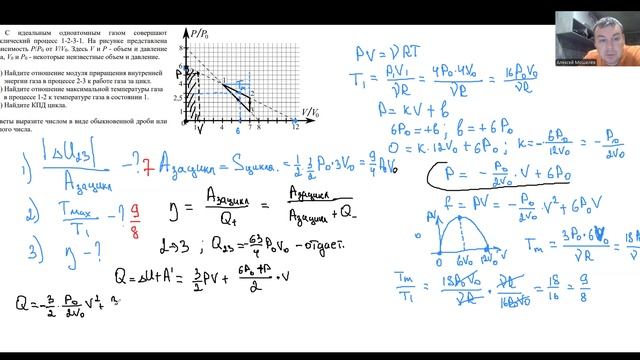 С идеальным одноатомным газом совершают
клический процесс 1-2-3-1. На рисунке представлена
висимость P/P₀ от V/V₀. Здесь V и P - объем и давление
а, V₀ и P₀ - некоторые неизвестные объем и давление.
) Найдите отношение модуля приращения внутренней
энергии газа в процессе 2-3 к работе газа за цикл.
) Найдите отношение максимальной температуры газа
в процессе 1-2 к температуре газа в состоянии 1.
) Найдите КПД цикла.
веты выразите числом в виде обыкновенной дроби или
ого числа.
P/P₀
8
6
P
4
2,5
2
1
0
1
2
3
Tm
V
2
4
6
7
8
12
V/V₀
Алексей Мошелев
PV = νRT
T₁ = P₁V₁/νR = 4P₀·4V₀/νR = 16P₀V₀/νR
P = kV + b
6P₀ = +b ; b = +6P₀
0 = k·12V₀ + 6P₀ ; k = -6P₀/12V₀ = -P₀/2V₀
P = -P₀/2V₀ · V + 6P₀
f = PV = -P₀/2V₀ · V² + 6P₀V
PV
0
6V₀
12V₀
V
Tm = 3P₀·6V₀/νR = 18P₀
Tm/T₁ = 18P₀V₀/νR · νR/16P₀V₀ = 18/16 = 9/8
1) |ΔU₂₃|/Aзацикл - ? 7
Aзацикл = Sцикла = 1/2 · 3/2 P₀ · 3V₀ = 9/4 P₀V₀
2) Tmax/T₁ - ? 9/8
η = Aзацикл/Q₊ = Aзацикл/Aзацикл + Q₋
3) η - ?
2→3 ; Q₂₃ = -63/4 P₀V₀ - отдает.
Q = ΔU + A' = 3/2 PV + 6P₀+P/2 · V
Q = -3/2 · P₀/2V₀ V² +